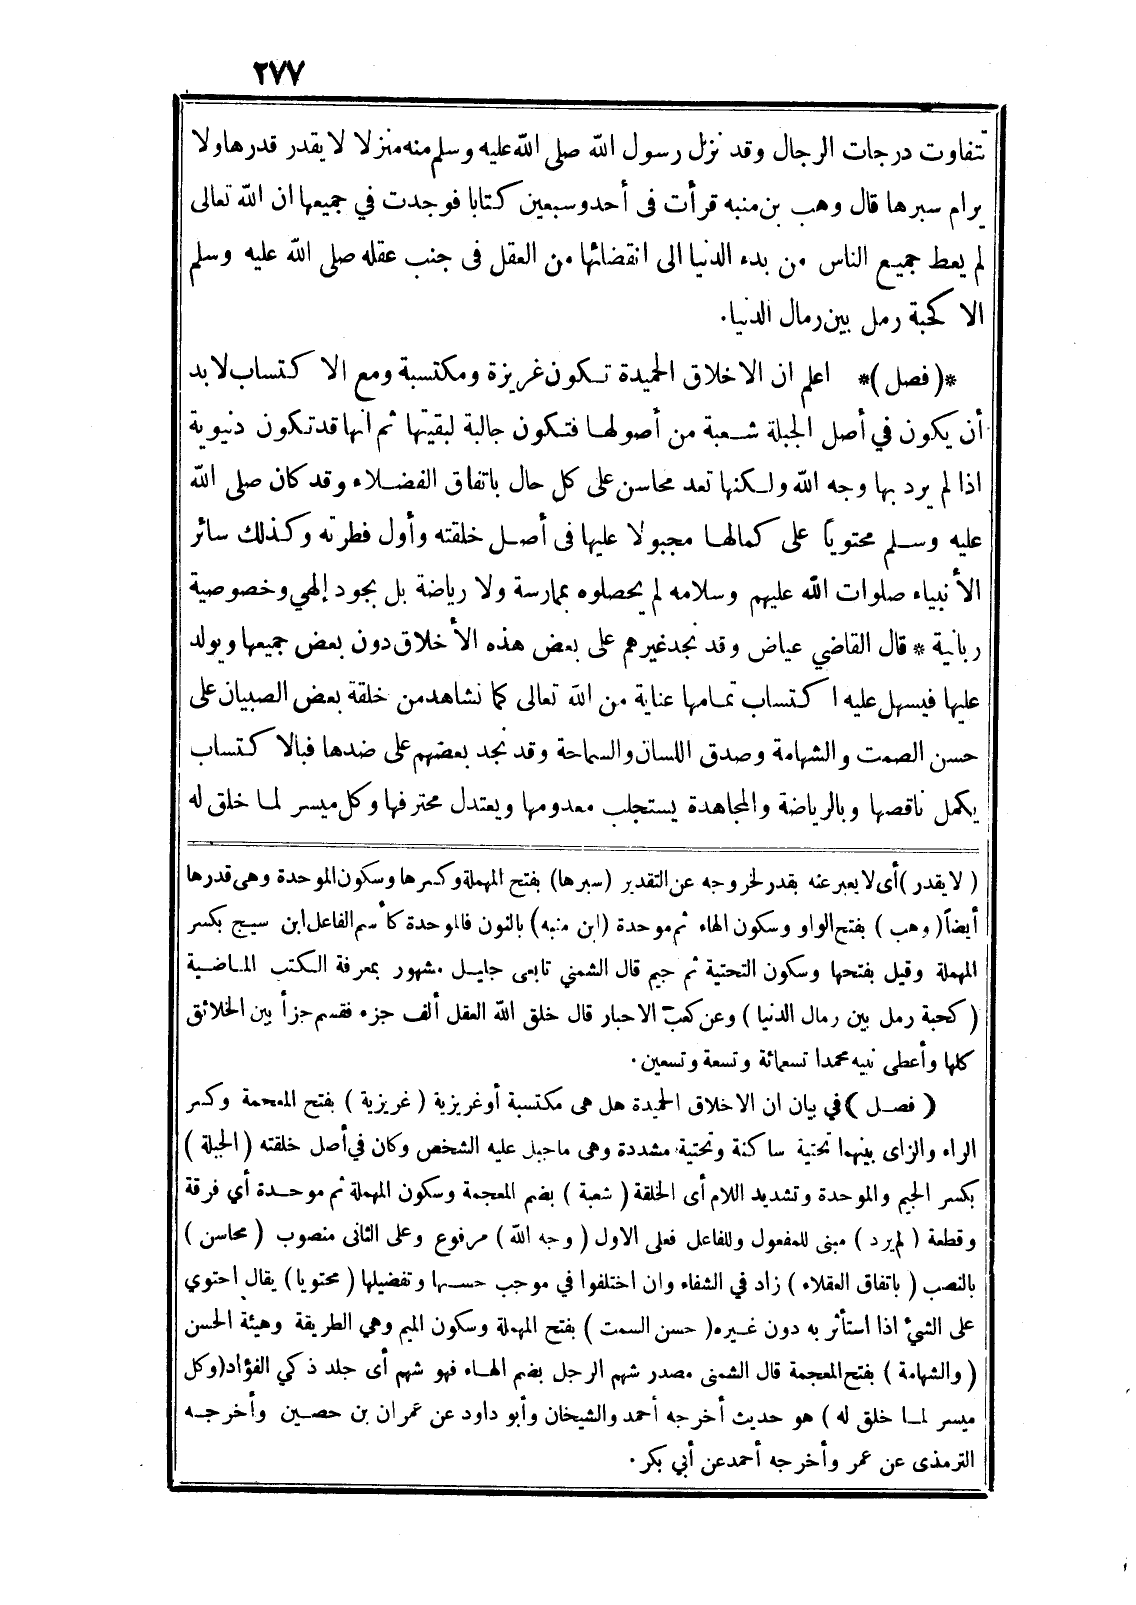 ٢٧٧
تتفاوت درجات الرجال وقد نزل رسول الله صلى الله عليه وسلم منه منزلا لا يقدر قدرها ولا
يرام سبرها قال وهب بن منبه قرأت فى أحد وسبعين كتابا فوجدت في جميعها ان الله تعالى
لم يعط جميع الناس من بدء الدنيا الى انقضائها من العقل فى جنب عقله صلى الله عليه وسلم
الا كحبة رمل بين رمال الدنيا.
*(فصل)* اعلم ان الاخلاق الحميدة تكون غريزة ومكتسبة ومع الا كتساب لا بد
أن يكون في أصل الجبلة شعبة من أصولها فتكون جالبة لبقيتها ثم انها قد تكون دنيوية
اذا لم يرد بها وجه الله ولكنها تعد محاسن على كل حال باتفاق الفضلاء وقد كان صلى الله
عليه وسلم محتوياً على كمالها مجبولا عليها فى أصل خلقته وأول فطرته وكذلك سائر
الأنبياء صلوات الله عليهم وسلامه لم يحصلوه بممارسة ولا رياضة بل بجود إلهي وخصوصية
ربانية * قال القاضي عياض وقد نجد غيرهم على بعض هذه الأخلاق دون بعض جميعها ويولد
عليها فيسهل عليه ا كتساب تمامها عناية من الله تعالى كما نشاهد من خلقة بعض الصبيان على
حسن الصمت والشهامة وصدق اللسان والسماحة وقد نجد بعضهم على ضدها فبالا كتساب
يكمل ناقصها وبالرياضة والمجاهدة يستجلب معدومها ويعتدل محترفها وكل ميسر لما خلق له
( لا يقدر ) أى لا يعبر عنه بقدر لخروجه عن التقدير (سبرها) بفتح المهملة وكسرها وسكون الموحدة وهى قدرها
أيضاً ( وهب ) بفتح الواو وسكون الهاء ثم موحدة (ابن منبه) بالنون فالموحدة كأسم الفاعل ابن سيج بكسر
المهملة وقيل بفتحها وسكون التحتية ثم جيم قال الشمني تابعى جليل مشهور بمعرفة الكتب الماضية
( كحبة رمل بين رمال الدنيا ) وعن كعب الاحبار قال خلق الله العقل ألف جزء فقسم جزأ بين الخلائق
كلها وأعطى نبيه محمدا تسعمائة وتسعة وتسعين.
( فصل ) في بيان ان الاخلاق الحميدة هل هى مكتسبة أو غريزية ( غريزية ) بفتح المعجمة وكسر
الراء والزاى بينهما تحتية ساكنة وتحتية مشددة وهى ما جبل عليه الشخص وكان في أصل خلقته ( الجبلة )
بكسر الجيم والموحدة وتشديد اللام أى الخلقة ( شعبة ) بضم المعجمة وسكون المهملة ثم موحدة أي فرقة
وقطعة ( لم يرد ) مبنى للمفعول وللفاعل فعلى الاول ( وجه الله ) مرفوع وعلى الثانى منصوب ( محاسن )
بالنصب ( باتفاق العقلاء ) زاد في الشفاء وان اختلفوا في موجب حسنها وتفضيلها ( محتويا ) يقال احتوي
على الشيء اذا استأثر به دون غيره ( حسن السمت ) بفتح المهملة وسكون الميم وهي الطريقة وهيئة الحسن
( والشهامة ) بفتح المعجمة قال الشمنى مصدر شهم الرجل بضم الهاء فهو شهم أى جلد ذكي الفؤاد (وكل
ميسر لما خلق له ) هو حديث أخرجه أحمد والشيخان وأبو داود عن عمران بن حصين وأخرجه
الترمذى عن عمر وأخرجه أحمد عن أبي بكر.